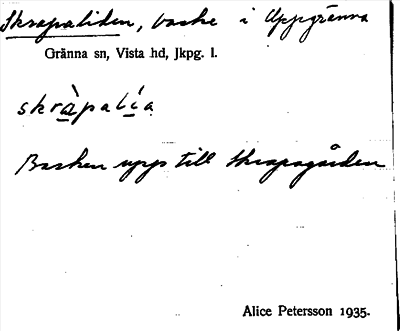 Skrapaliden, backe i Uppgränna
Gränna sn, Vista hd, Jkpg. l.
skràpalía
Backen upp till Skrapagården
Alice Petersson 1935.